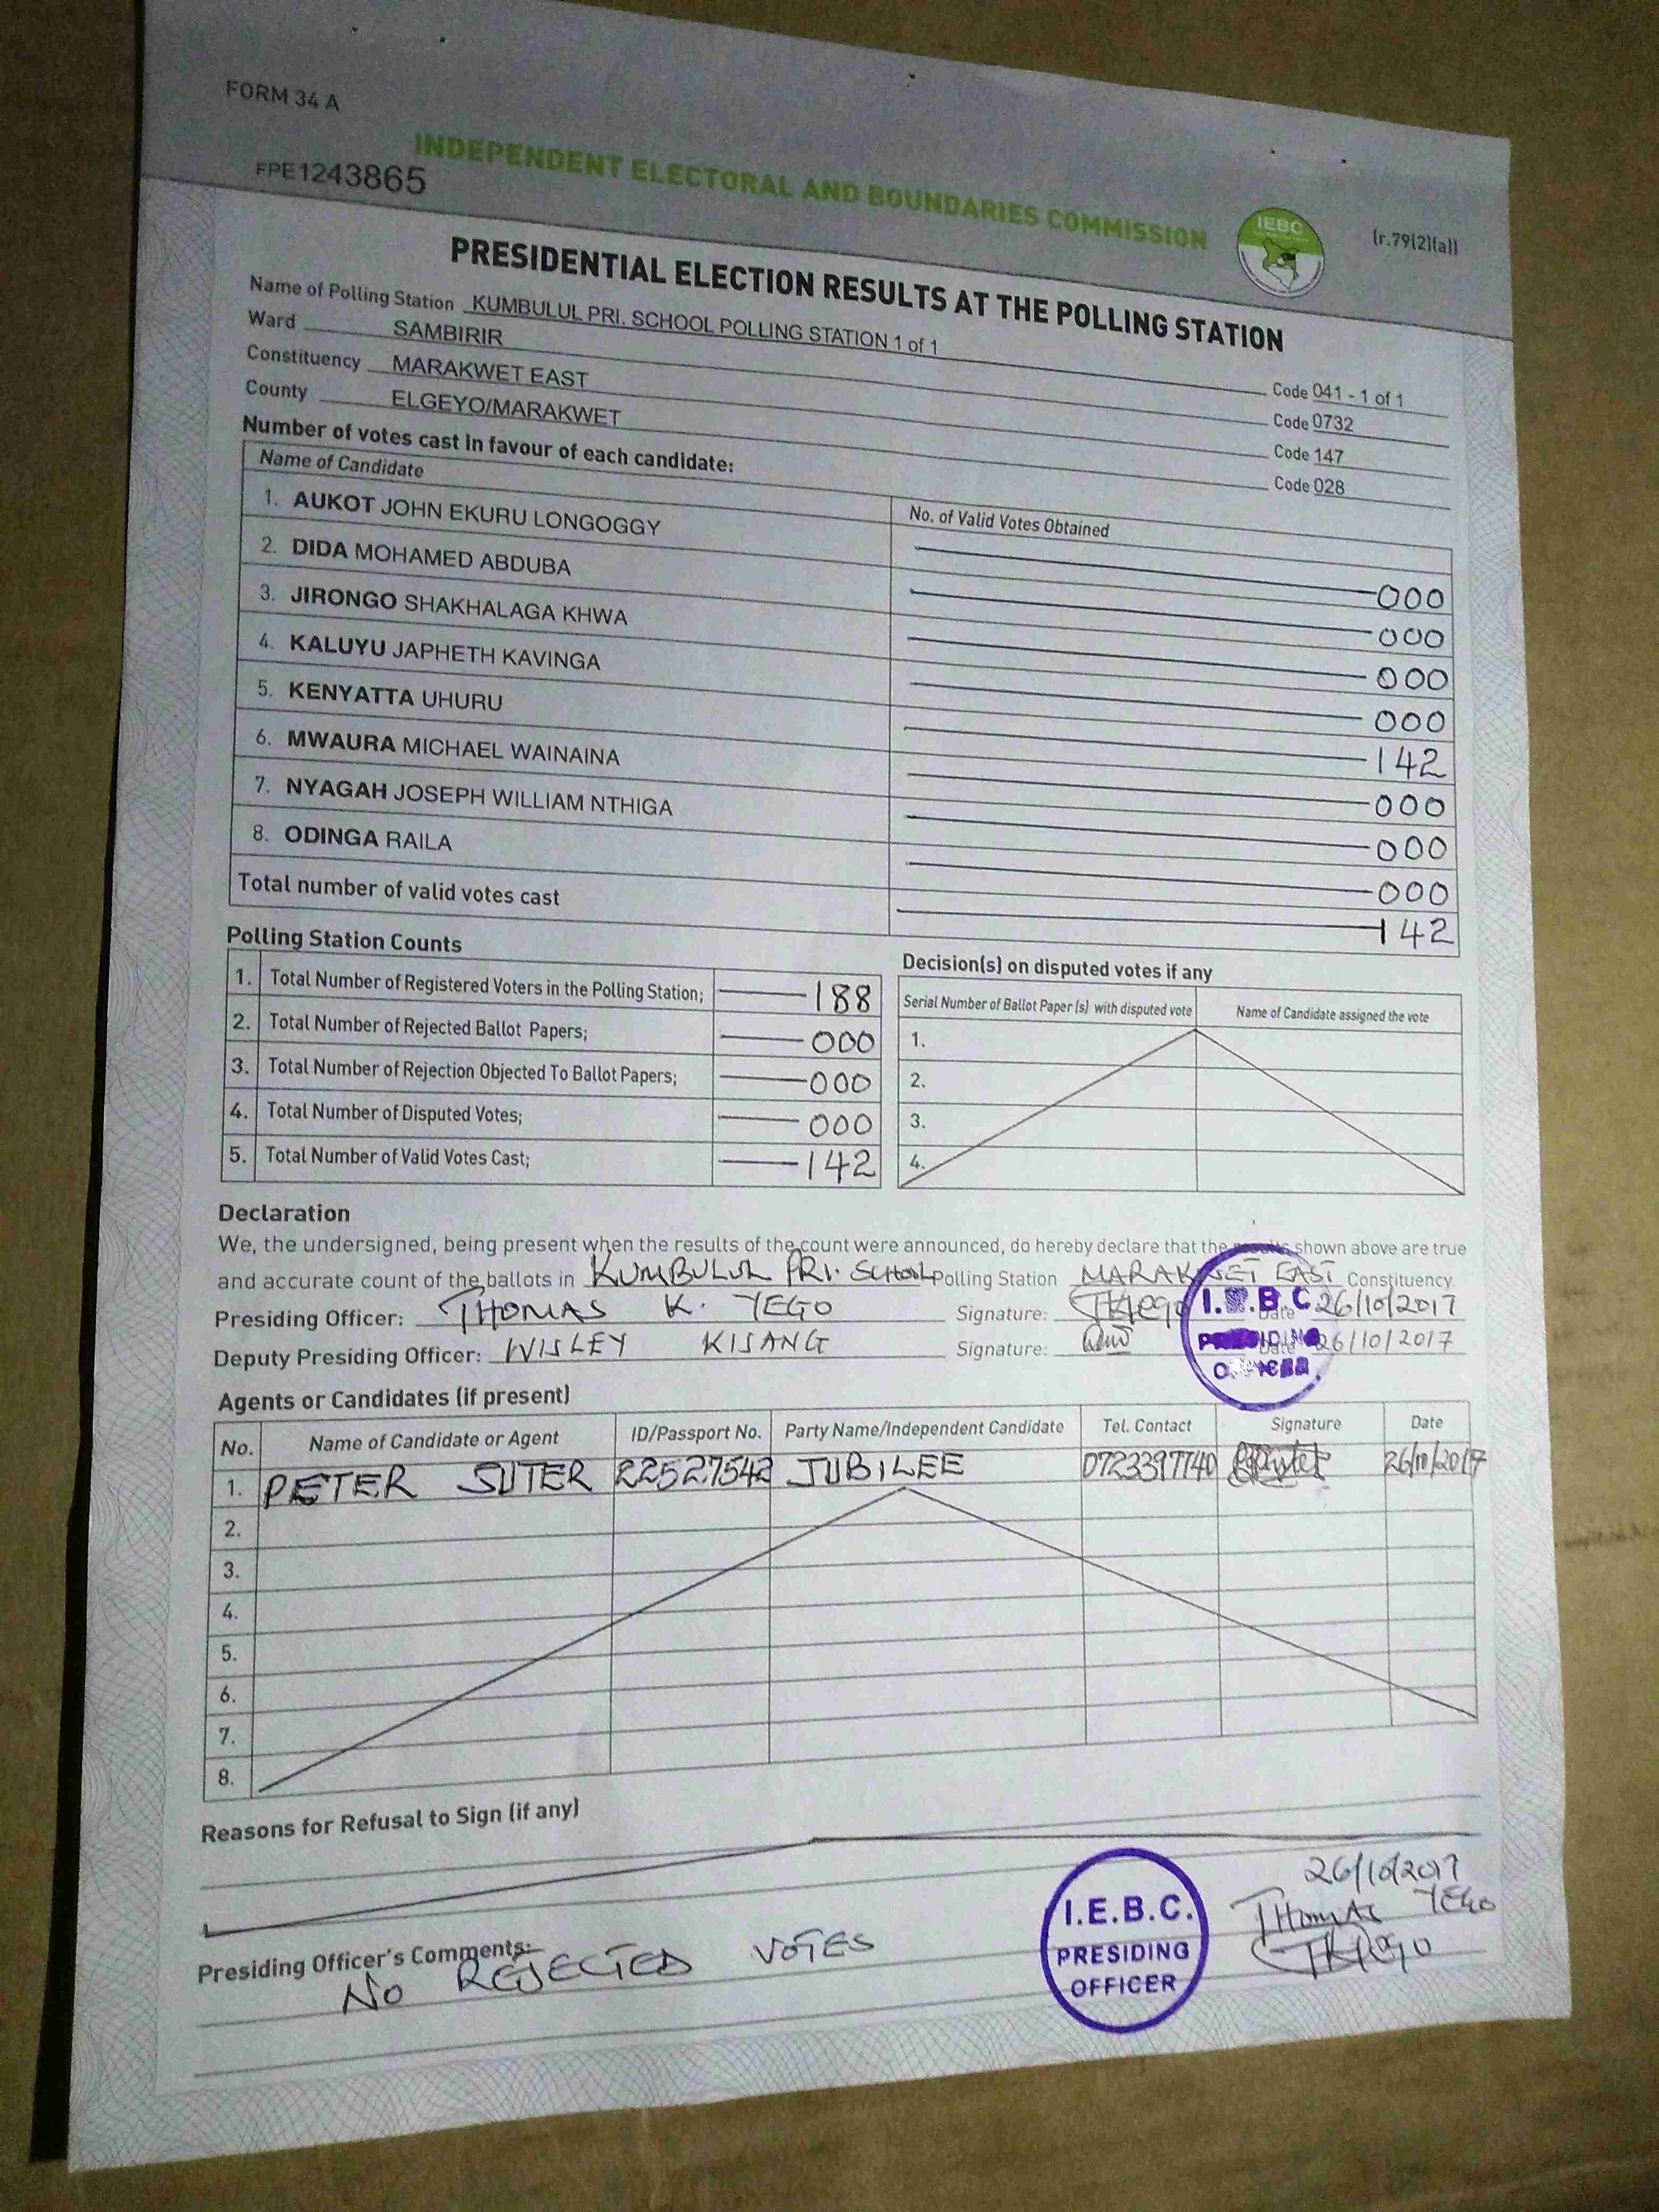 FORM 34 A
INDEPENDENT ELECTORAL AND BOUNDARIES COMMISSION
FPE1243865
IEBC
(r.79(2)(a))
PRESIDENTIAL ELECTION RESULTS AT THE POLLING STATION
Name of Polling Station KUMBULUL PRI. SCHOOL POLLING STATION 1 of 1 Code 041 - 1 of 1
Ward SAMBIRIR Code 0732
Constituency MARAKWET EAST Code 147
County ELGEYO/MARAKWET Code 028
Number of votes cast in favour of each candidate:
Name of Candidate No. of Valid Votes Obtained
1. AUKOT JOHN EKURU LONGOGGY 000
2. DIDA MOHAMED ABDUBA 000
3. JIRONGO SHAKHALAGA KHWA 000
4. KALUYU JAPHETH KAVINGA 000
5. KENYATTA UHURU 142
6. MWAURA MICHAEL WAINAINA 000
7. NYAGAH JOSEPH WILLIAM NTHIGA 000
8. ODINGA RAILA 000
Total number of valid votes cast 142
Polling Station Counts
1. Total Number of Registered Voters in the Polling Station; 188
2. Total Number of Rejected Ballot Papers; 000
3. Total Number of Rejection Objected To Ballot Papers; 000
4. Total Number of Disputed Votes; 000
5. Total Number of Valid Votes Cast; 142
Decision(s) on disputed votes if any
Serial Number of Ballot Paper (s) with disputed vote Name of Candidate assigned the vote
1.
2.
3.
4.
Declaration
We, the undersigned, being present when the results of the count were announced, do hereby declare that the results shown above are true
and accurate count of the ballots in KUMBULUL PRI. SCHOOL Polling Station MARAKWET EAST Constituency.
Presiding Officer: THOMAS K. YEGO Signature: Date 26/10/2017
Deputy Presiding Officer: WISLEY KISANG Signature: Date 26/10/2017
I.E.B.C
PRESIDING
OFFICER
Agents or Candidates (if present)
No. Name of Candidate or Agent ID/Passport No. Party Name/Independent Candidate Tel. Contact Signature Date
1. PETER SUTER 22527542 JUBILEE 0723397740 26/10/2017
2.
3.
4.
5.
6.
7.
8.
Reasons for Refusal to Sign (if any)
Presiding Officer's Comments:
NO REJECTED VOTES
I.E.B.C.
PRESIDING
OFFICER
26/10/2017
THOMAS YEGO